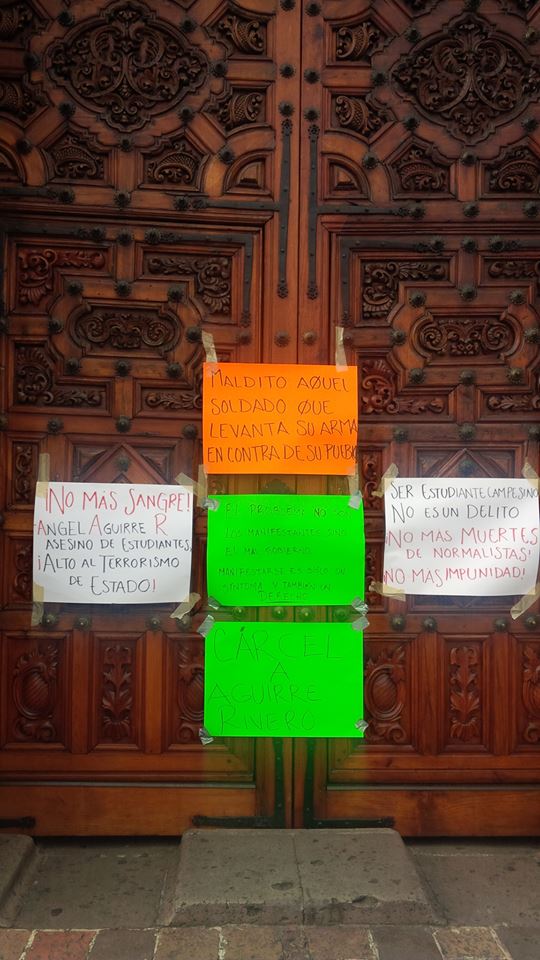 MALDITO AQUEL
SOLDADO QUE
LEVANTA SU ARMA
EN CONTRA DE SU PUEBLO
¡NO MÁS SANGRE!
ANGEL AGUIRRE R
ASESINO DE ESTUDIANTES,
¡ALTO AL TERRORISMO
DE ESTADO!
EL PROBLEMA NO SON
LOS MANIFESTANTES SINO
EL MAL GOBIERNO.
MANIFESTARSE ES SOLO UN
SÍNTOMA Y TAMBIÉN UN
DERECHO
SER ESTUDIANTE CAMPESINO
NO ES UN DELITO
¡NO MÁS MUERTES
DE NORMALISTAS!
¡NO MAS IMPUNIDAD!
CÁRCEL
A
AGUIRRE
RIVERO